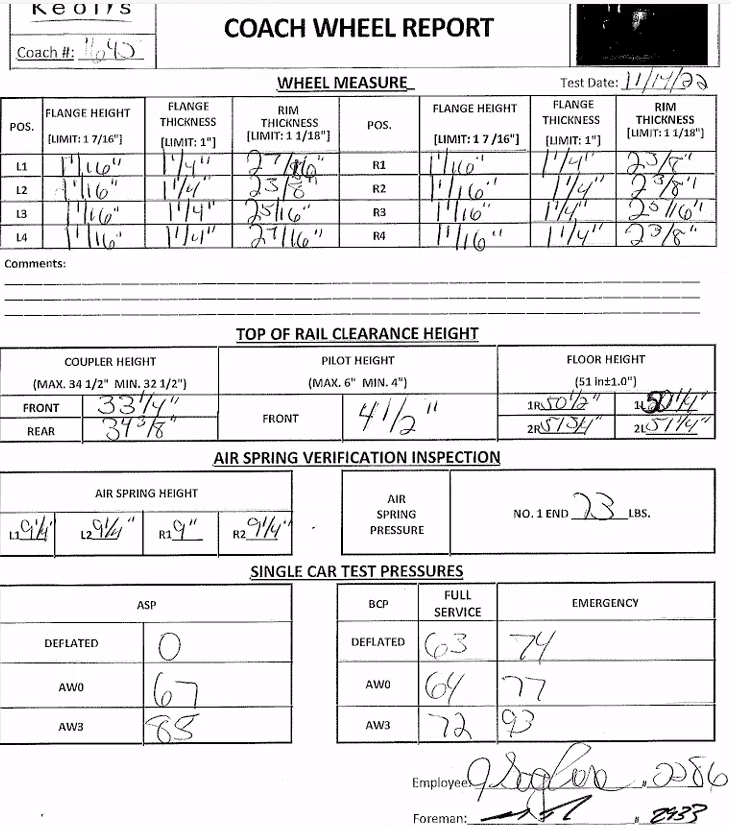 Keolis
COACH WHEEL REPORT
Coach #: 1645
WHEEL MEASURE
Test Date: 11/14/22
POS. FLANGE HEIGHT [LIMIT: 1 7/16"] FLANGE THICKNESS [LIMIT: 1"] RIM THICKNESS [LIMIT: 1 1/18"] POS. FLANGE HEIGHT [LIMIT: 1 7/16"] FLANGE THICKNESS [LIMIT: 1"] RIM THICKNESS [LIMIT: 1 1/18"]
L1 1 1/16" 1 1/4" 2 7/16" R1 1 1/16" 1 1/4" 2 3/8"
L2 1 1/16" 1 1/4" 2 3/8" R2 1 1/16" 1 1/4" 2 3/8"
L3 1 1/16" 1 1/4" 2 5/16" R3 1 1/16" 1 1/4" 2 5/16"
L4 1 1/16" 1 1/4" 2 7/16" R4 1 1/16" 1 1/4" 2 3/8"
Comments:
TOP OF RAIL CLEARANCE HEIGHT
COUPLER HEIGHT PILOT HEIGHT FLOOR HEIGHT
(MAX. 34 1/2" MIN. 32 1/2") (MAX. 6" MIN. 4") (51 in±1.0")
FRONT 33 1/4" FRONT 4 1/2" 1R 50 1/2" 1L 50 1/4"
REAR 34 3/8" 2R 51 3/4" 2L 51 1/4"
AIR SPRING VERIFICATION INSPECTION
AIR SPRING HEIGHT AIR SPRING PRESSURE NO. 1 END 73 LBS.
L1 9 1/4" L2 9 1/4" R1 9" R2 9 1/4"
SINGLE CAR TEST PRESSURES
ASP BCP FULL SERVICE EMERGENCY
DEFLATED 0 DEFLATED 63 74
AW0 67 AW0 64 77
AW3 85 AW3 72 93
Employee: # 2286
Foreman: # 2933